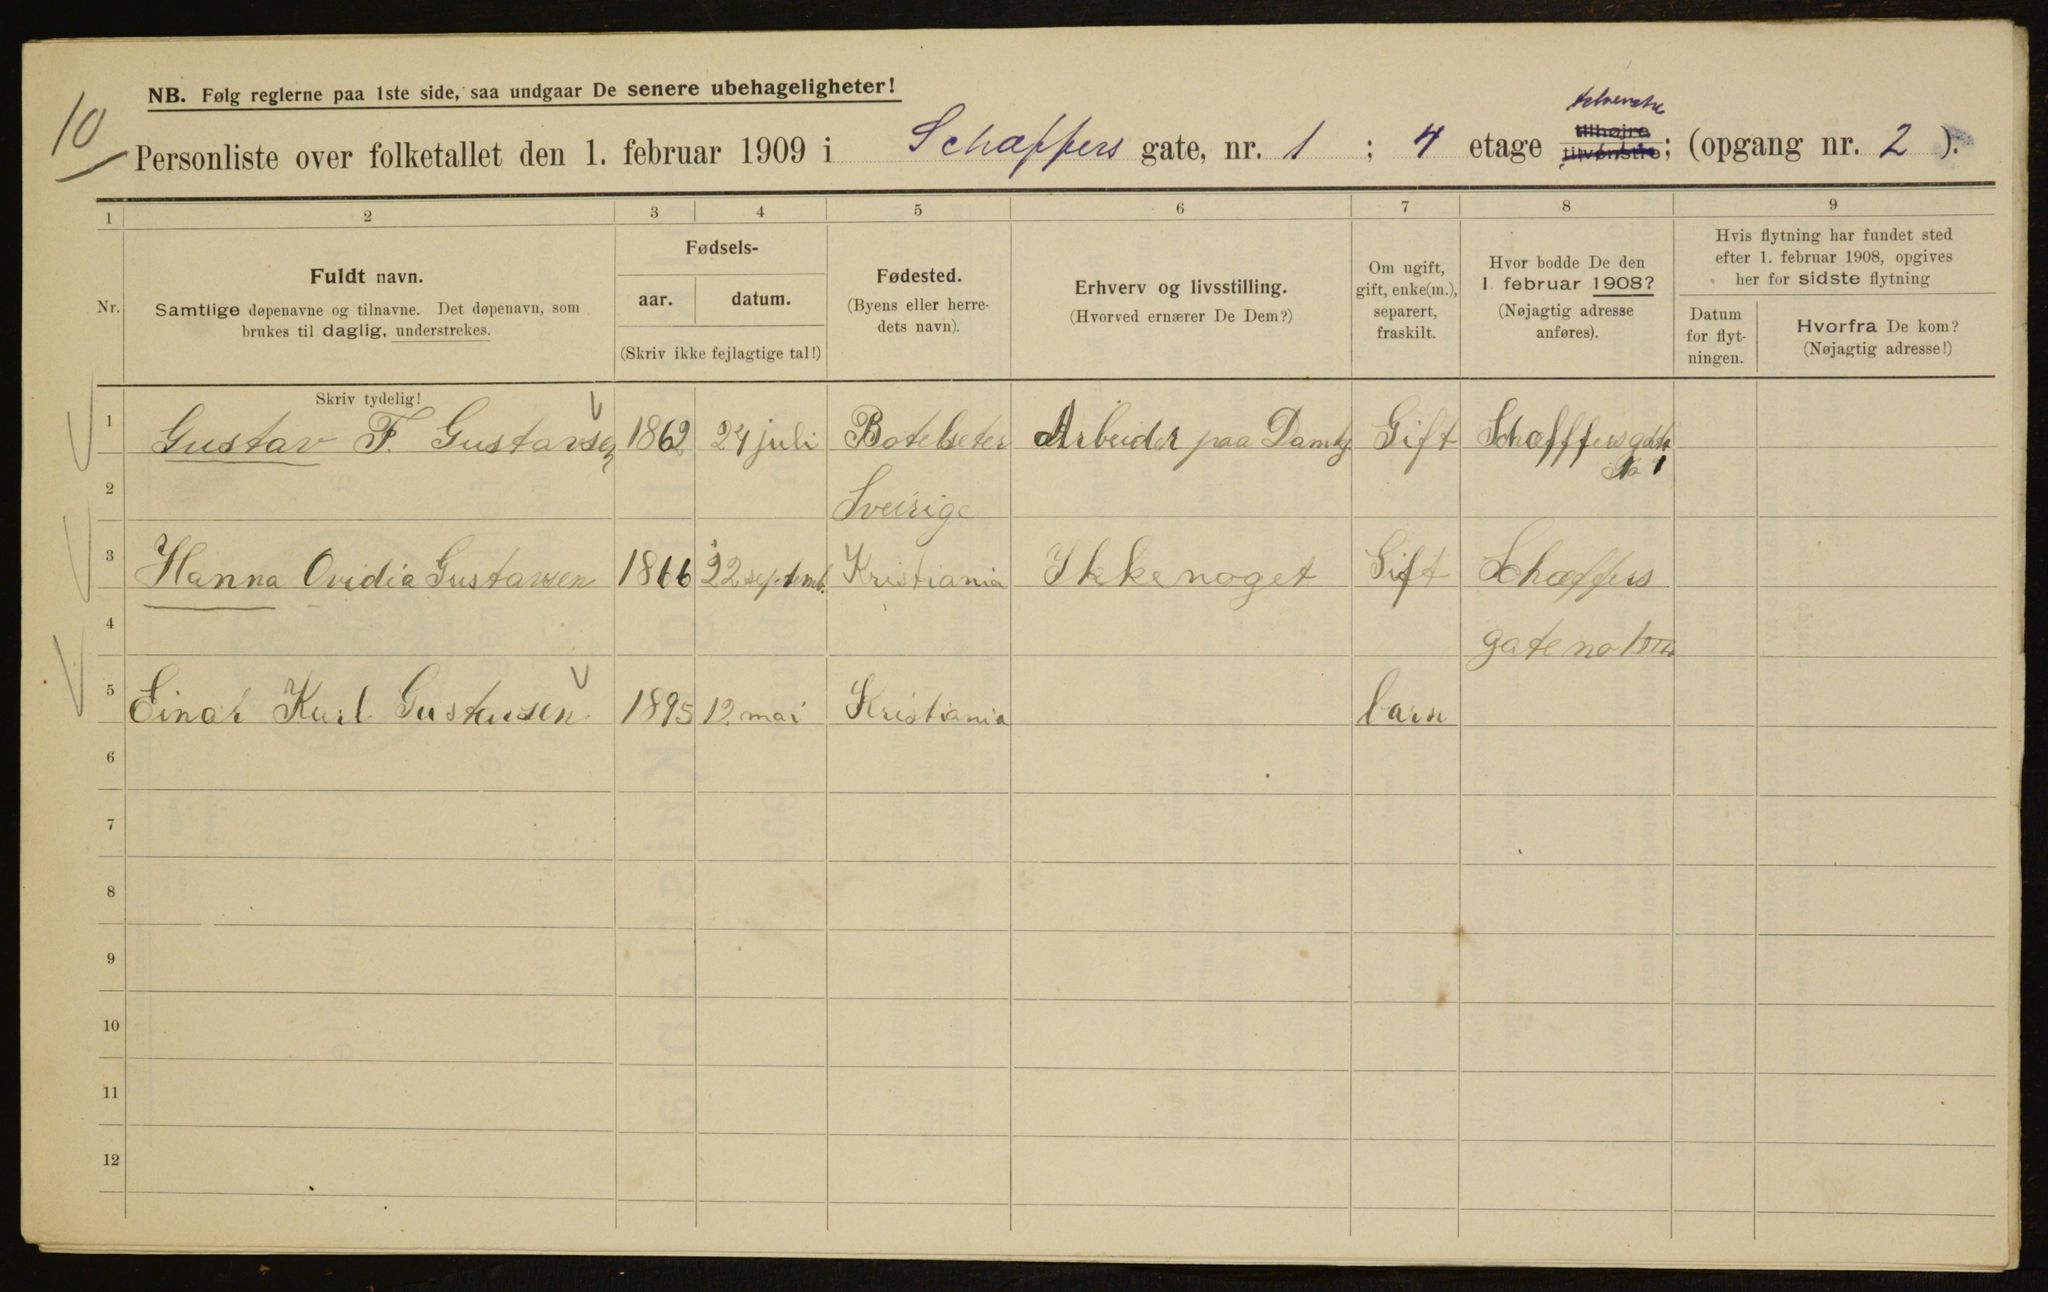 10
NB. Følg reglerne paa 1ste side, saa undgaar De senere ubehageligheter!
Personliste over folketallet den 1. februar 1909 i Schæffers gate, nr. 1 ; 4 etage tilhøjre tilvenstre; (opgang nr. 2 ).
1 2 3 4 5 6 7 8 9
Nr.
Fuldt navn.
Samtlige døpenavne og tilnavne. Det døpenavn, som
brukes til daglig, understrekes.
Skriv tydelig!
Fødsels-
aar. datum.
(Skriv ikke fejlagtige tal!)
Fødested.
(Byens eller herre-
dets navn).
Erhverv og livsstilling.
(Hvorved ernærer De Dem?)
Om ugift,
gift, enke(m.),
separert,
fraskilt.
Hvor bodde De den
1. februar 1908?
(Nøjagtig adresse
anføres).
Hvis flytning har fundet sted
efter 1. februar 1908, opgives
her for sidste flytning
Datum
for flyt-
ningen.
Hvorfra De kom?
(Nøjagtig adresse!)
1 Gustav F. Gustavsen 1862 24 juli Botelseter Arbeider paa Gift Schæffersgate
No 1
2 Sveirige
3 Hanna Ovidia Gustavsen 1866 22 septmb. Kristiania Ikke noget Gift Schæffers
4 gate no 1
5 Einar Kurl Gustavsen 1895 12 mai Kristiania barn
6
7
8
9
10
11
12